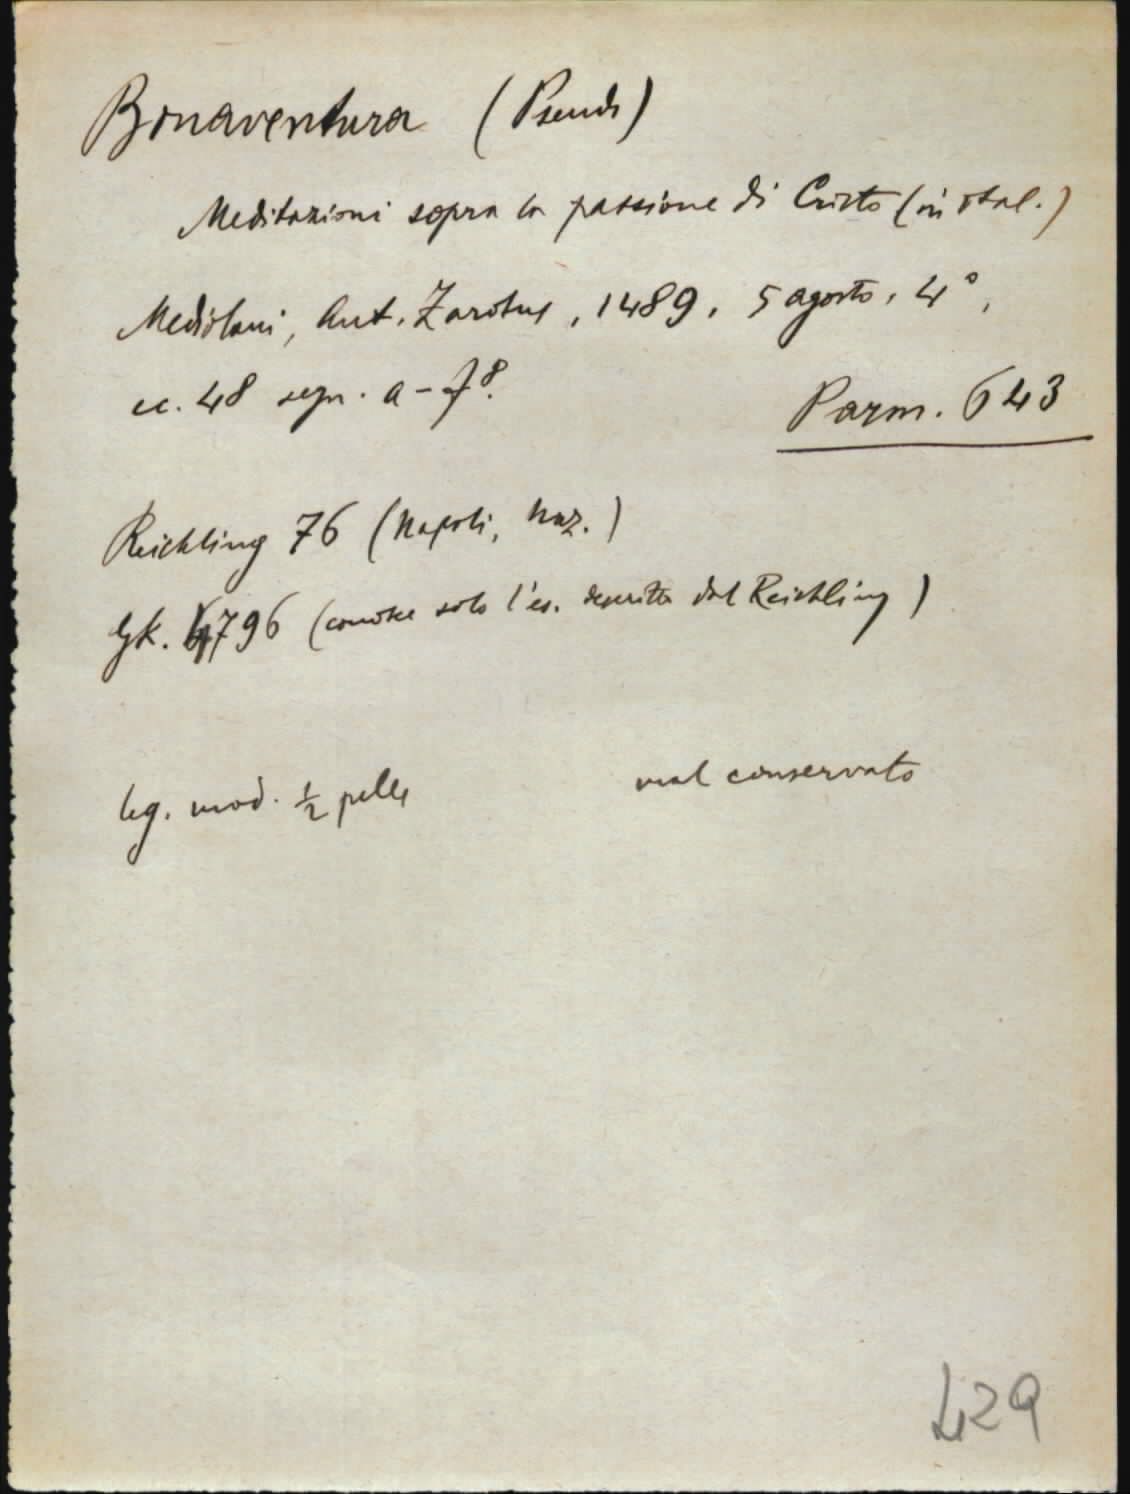 Bonaventura (Pseudo)
Meditazioni sopra la passione di Cristo (in ital.)
Mediolani, Ant. Zarotus, 1489, 5 agosto, 4°,
cc. 48 segn. a-f⁸.
Parm. 643
Reichling 76 (Napoli, Naz.)
GK. 4796 (conosce solo l'es. descritto dal Reichling)
leg. mod. ½ pelle
mal conservato
429